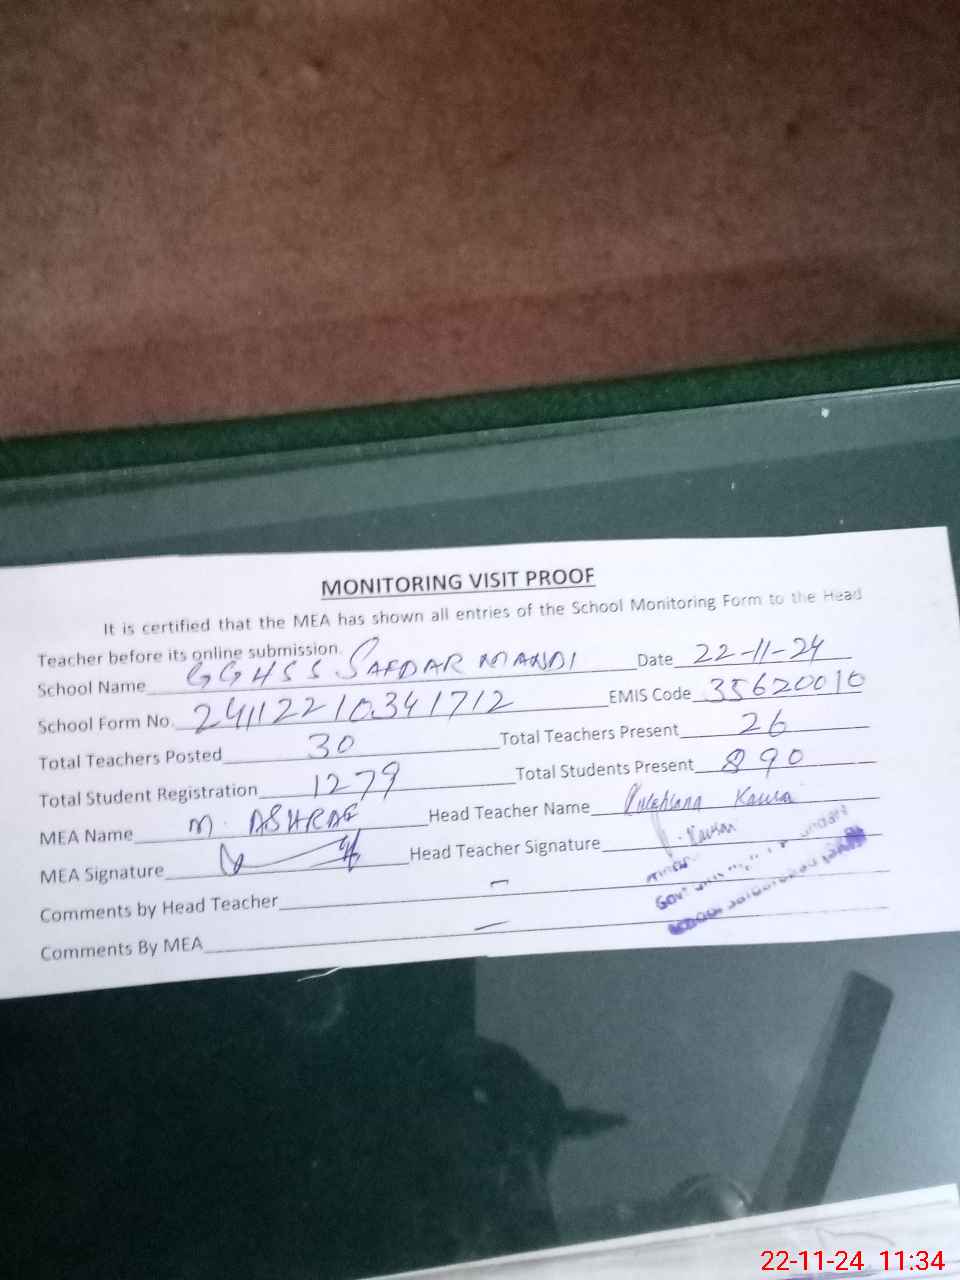 MONITORING VISIT PROOF
It is certified that the MEA has shown all entries of the School Monitoring Form to the Head
Teacher before its online submission.
School Name GGHSS SAFDAR MANDI Date 22-11-24
School Form No. 24112210341712 EMIS Code 35620010
Total Teachers Posted 30 Total Teachers Present 26
Total Student Registration 1279 Total Students Present 890
MEA Name M. ASHRAF Head Teacher Name Kausar
MEA Signature Head Teacher Signature Kausar
Comments by Head Teacher -
Comments By MEA -
22-11-24 11:34